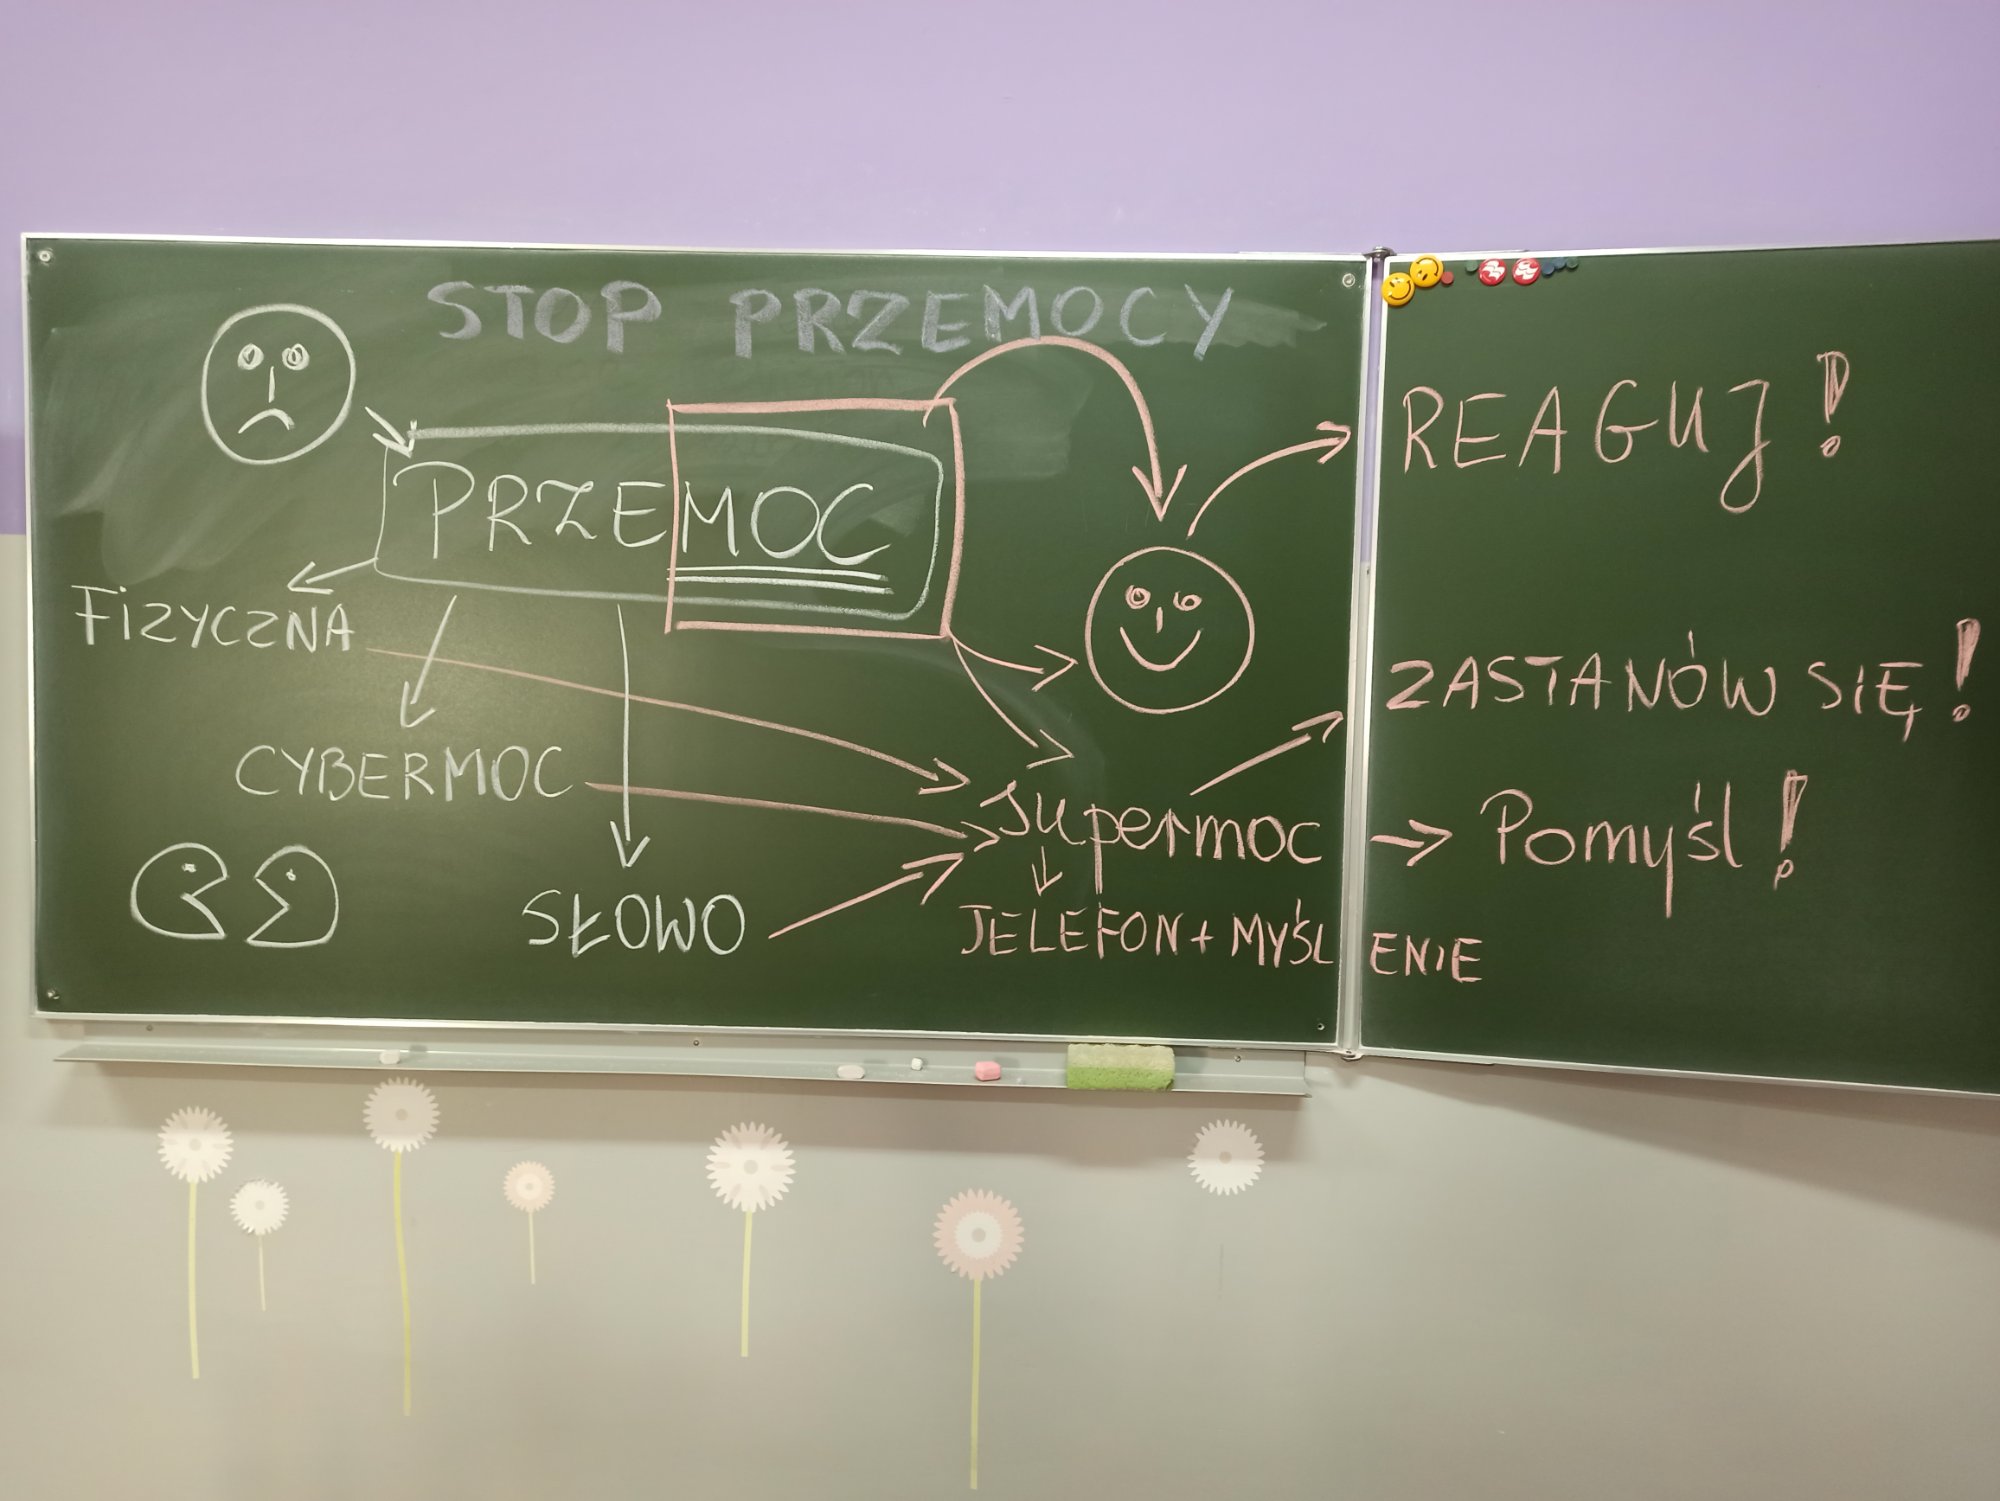 STOP PRZEMOCY
REAGUJ!
PRZEMOC
FIZYCZNA
ZASTANÓW SIĘ!
CYBERMOC
Supermoc → Pomyśl!
SŁOWO
TELEFON + MYŚLENIE